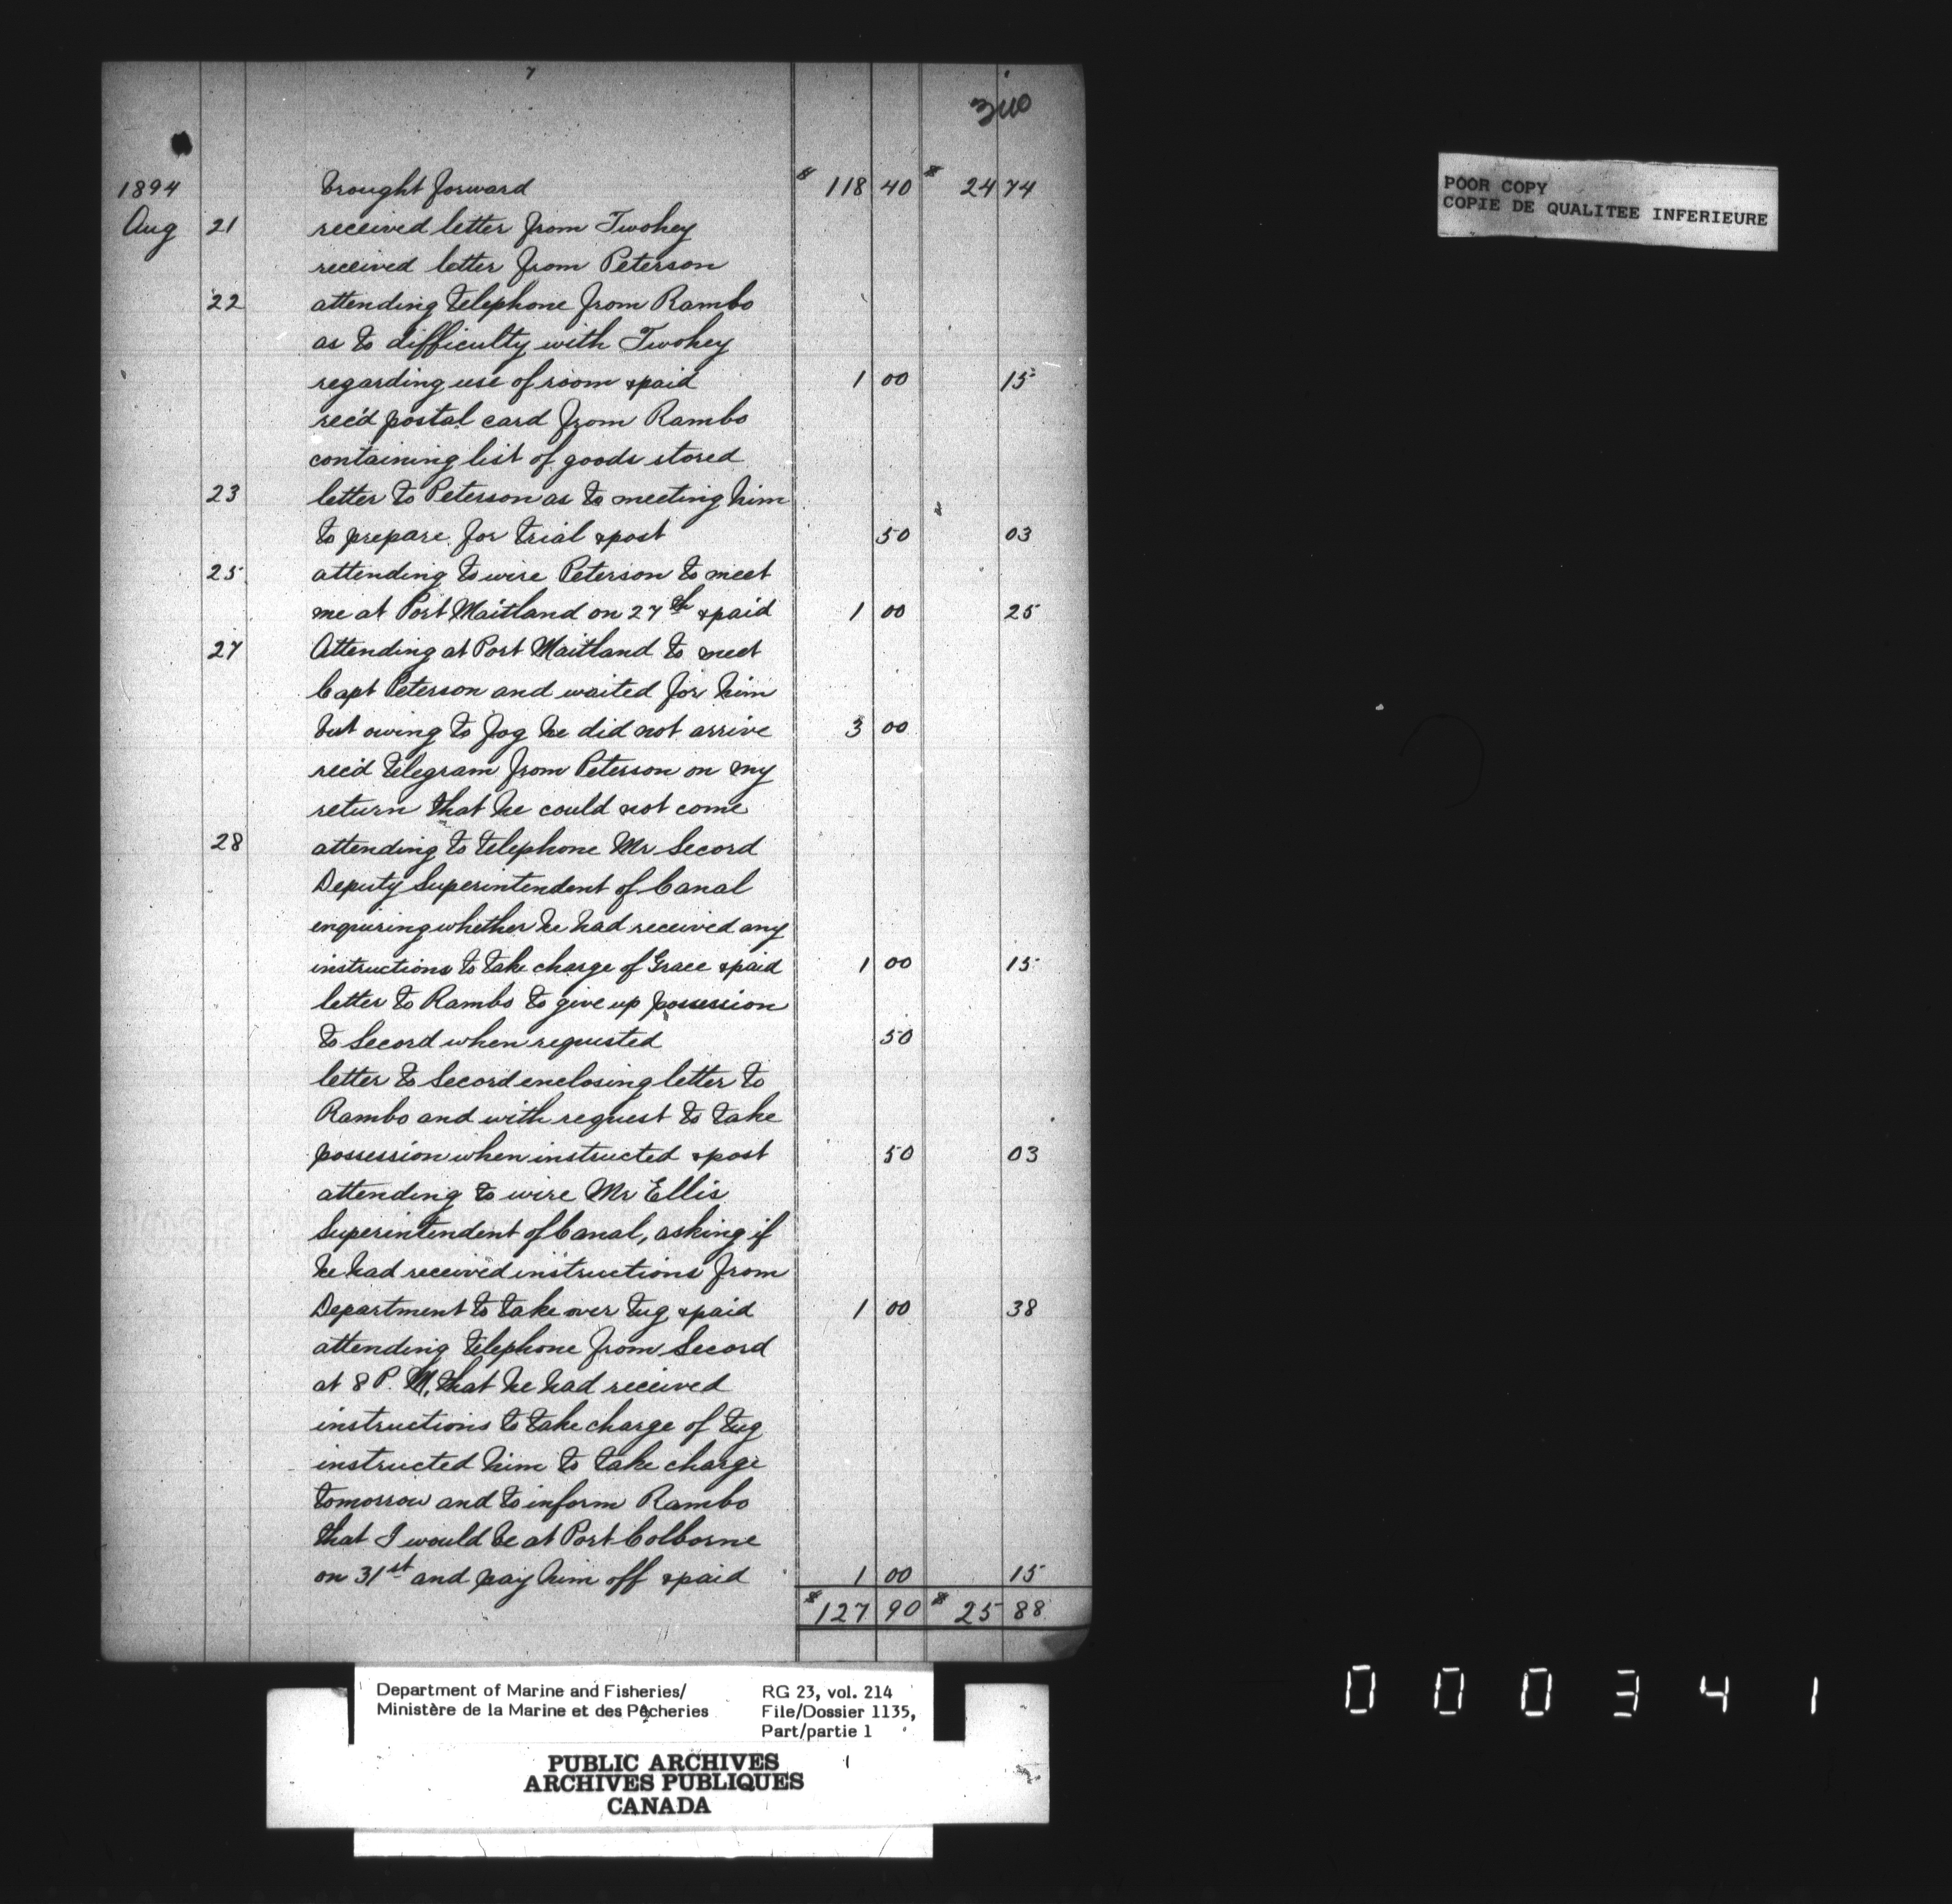 7
340
1894 brought forward $ 118 40 $ 24 74
Aug 21 received letter from Twohey
received letter from Peterson
22 attending telephone from Rambo
as to difficulty with Twohey
regarding use of room & paid 1 00 15
rec'd postal card from Rambo
containing list of goods stored
23 letter to Peterson as to meeting him
to prepare for trial & post 50 03
25 attending to wire Peterson to meet
me at Port Maitland on 27th & paid 1 00 25
27 Attending at Port Maitland to meet
Capt Peterson and waited for him
but owing to fog he did not arrive 3 00
rec'd telegram from Peterson on my
return that he could not come
28 attending to telephone Mr Secord
Deputy Superintendent of Canal
enquiring whether he had received any
instructions to take charge of Grace & paid 1 00 15
letter to Rambo to give up possession
to Secord when requested 50
letter to Secord enclosing letter to
Rambo and with request to take
possession when instructed & post 50 03
attending to wire Mr Ellis
Superintendent of Canal, asking if
he had received instructions from
Department to take over tug & paid 1 00 38
attending telephone from Secord
at 8 P.M. that he had received
instructions to take charge of tug
instructed him to take charge
tomorrow and to inform Rambo
that I would be at Port Colborne
on 31st and pay him off & paid 1 00 15
$ 127 90 $ 25 88
POOR COPY
COPIE DE QUALITEE INFERIEURE
Department of Marine and Fisheries/
Ministère de la Marine et des Pêcheries
RG 23, vol. 214
File/Dossier 1135,
Part/partie 1
PUBLIC ARCHIVES
ARCHIVES PUBLIQUES
CANADA
000341